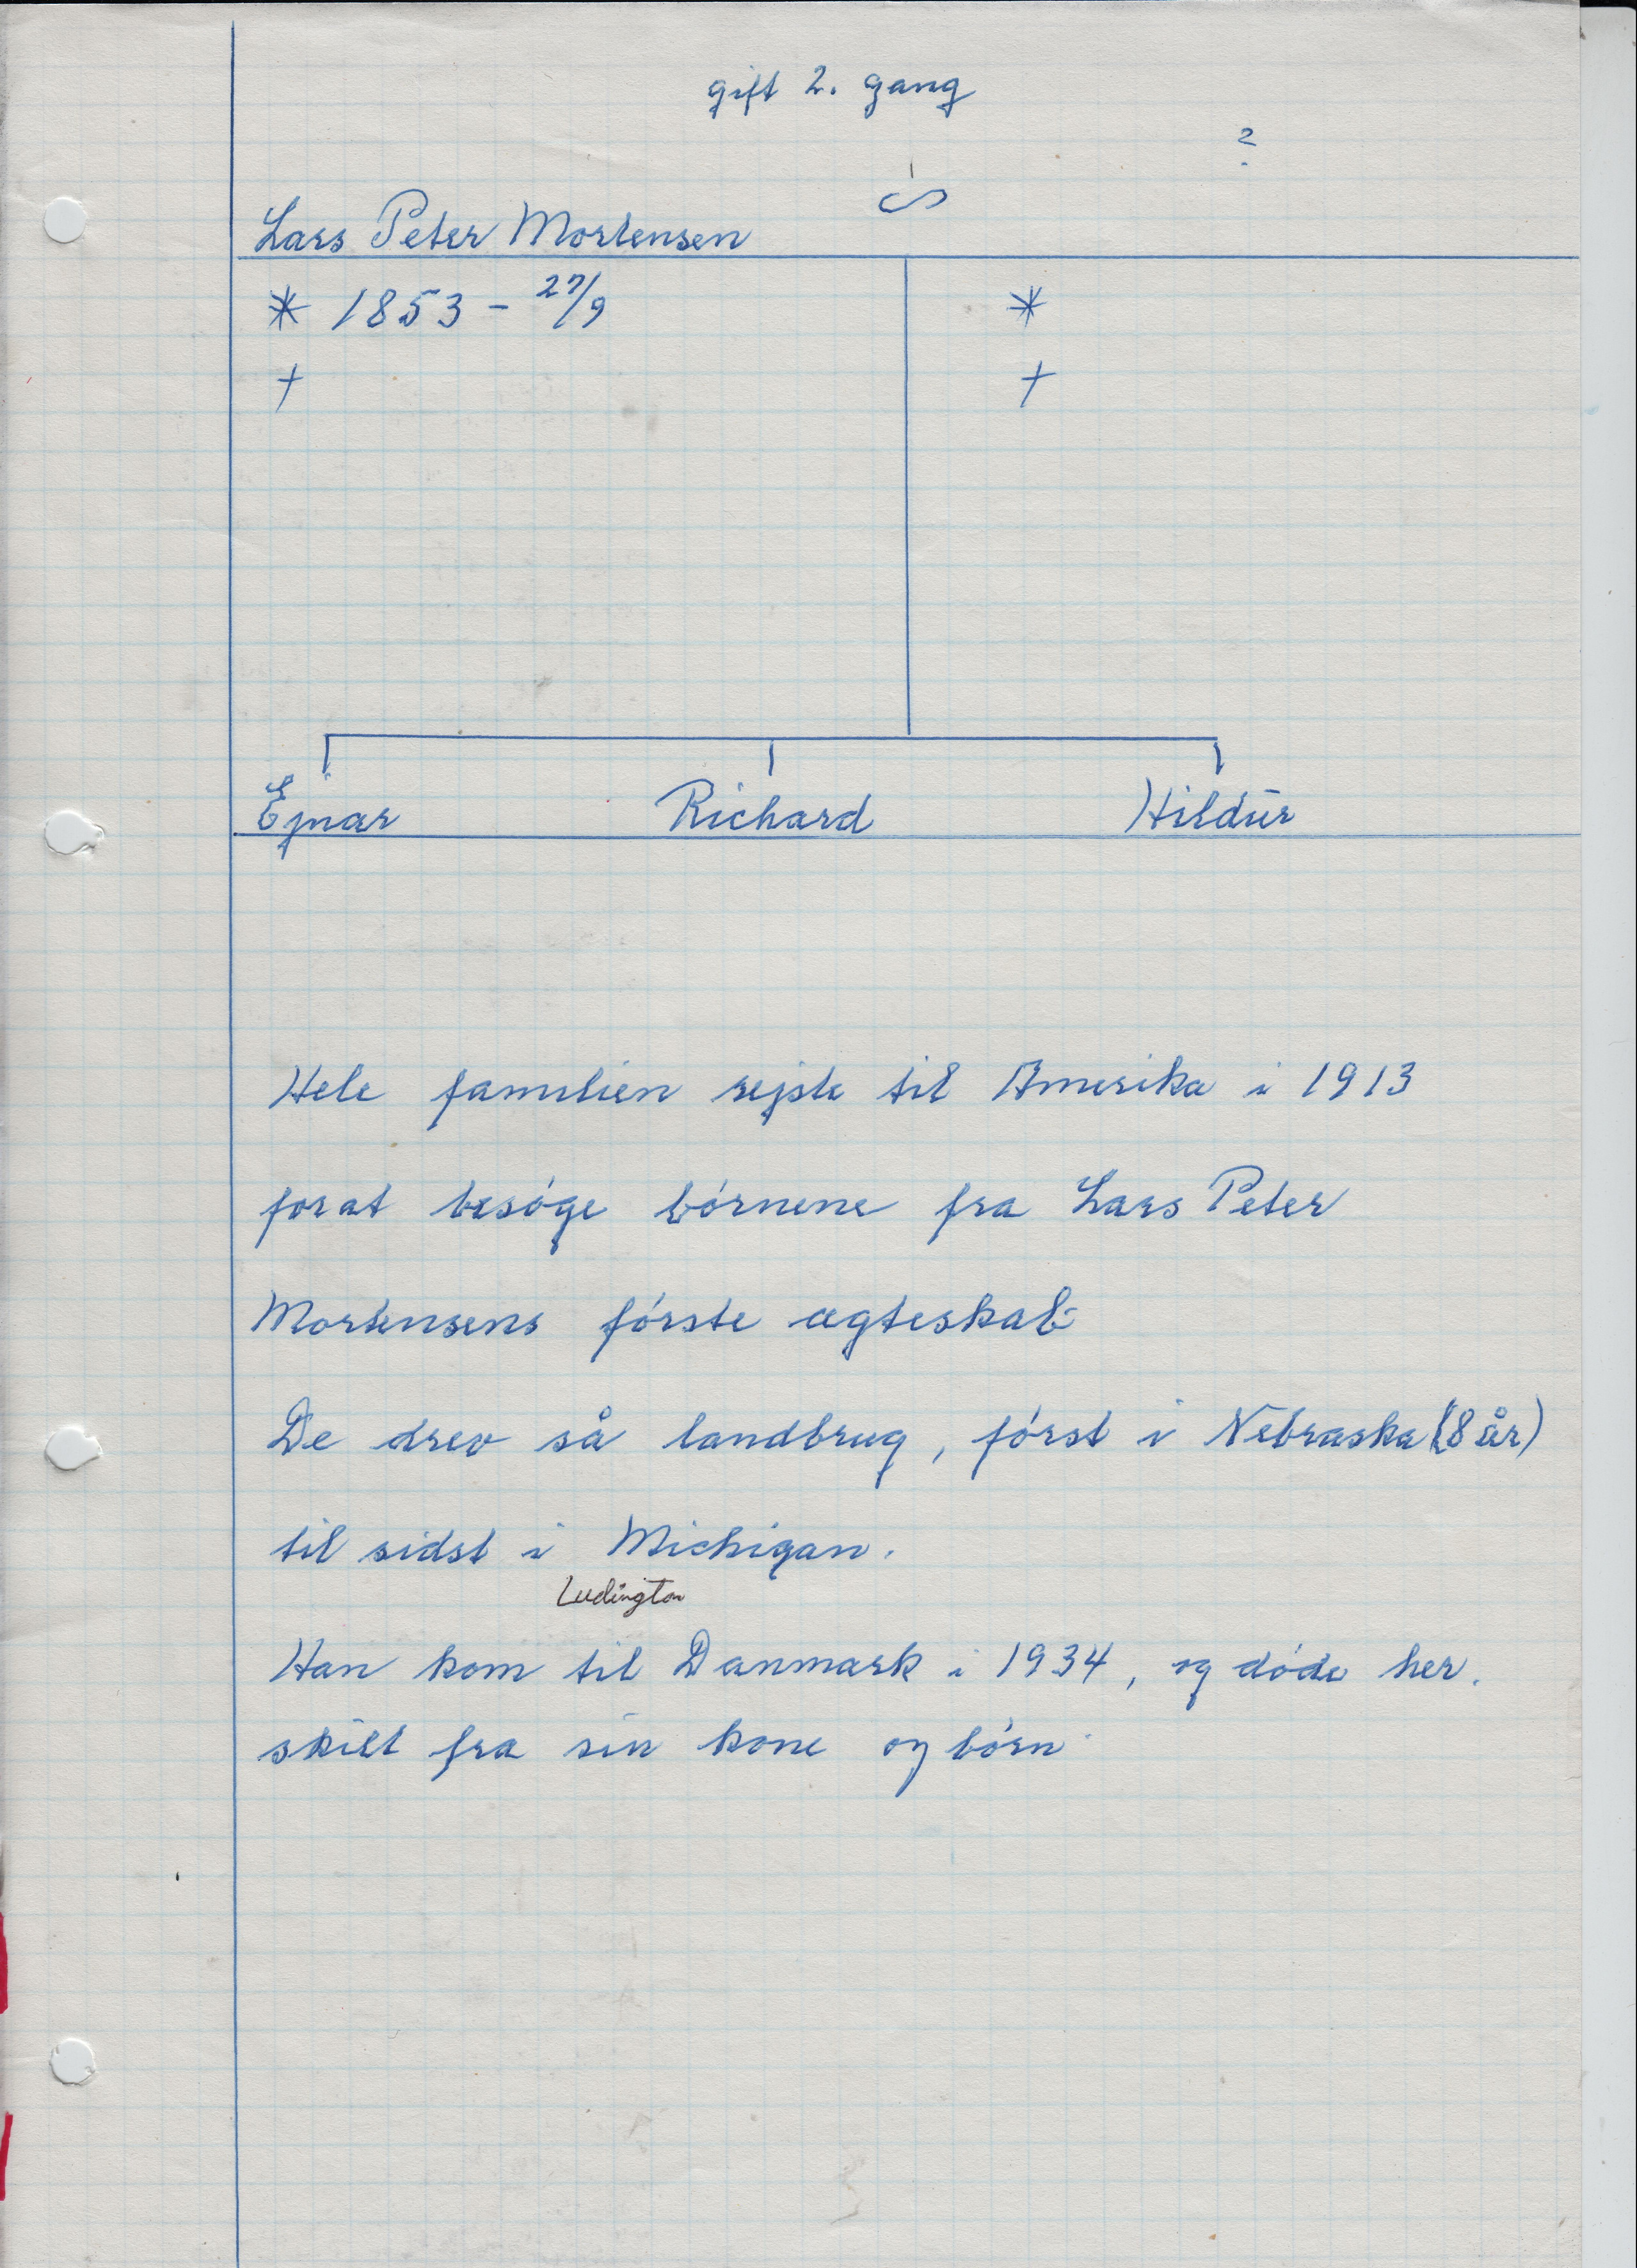 gift 2. gang
?
Lars Peter Mortensen
* 1853 - 27/9
*
†
†
Ejnar Richard Hildur
Hele familien rejste til Amerika i 1913
for at besøge børnene fra Lars Peter
Mortensens første ægteskab
De drev så landbrug, først i Nebraska (8 år)
til sidst i Michigan.
Ludington
Han kom til Danmark i 1934, og døde her.
skilt fra sin kone og børn.